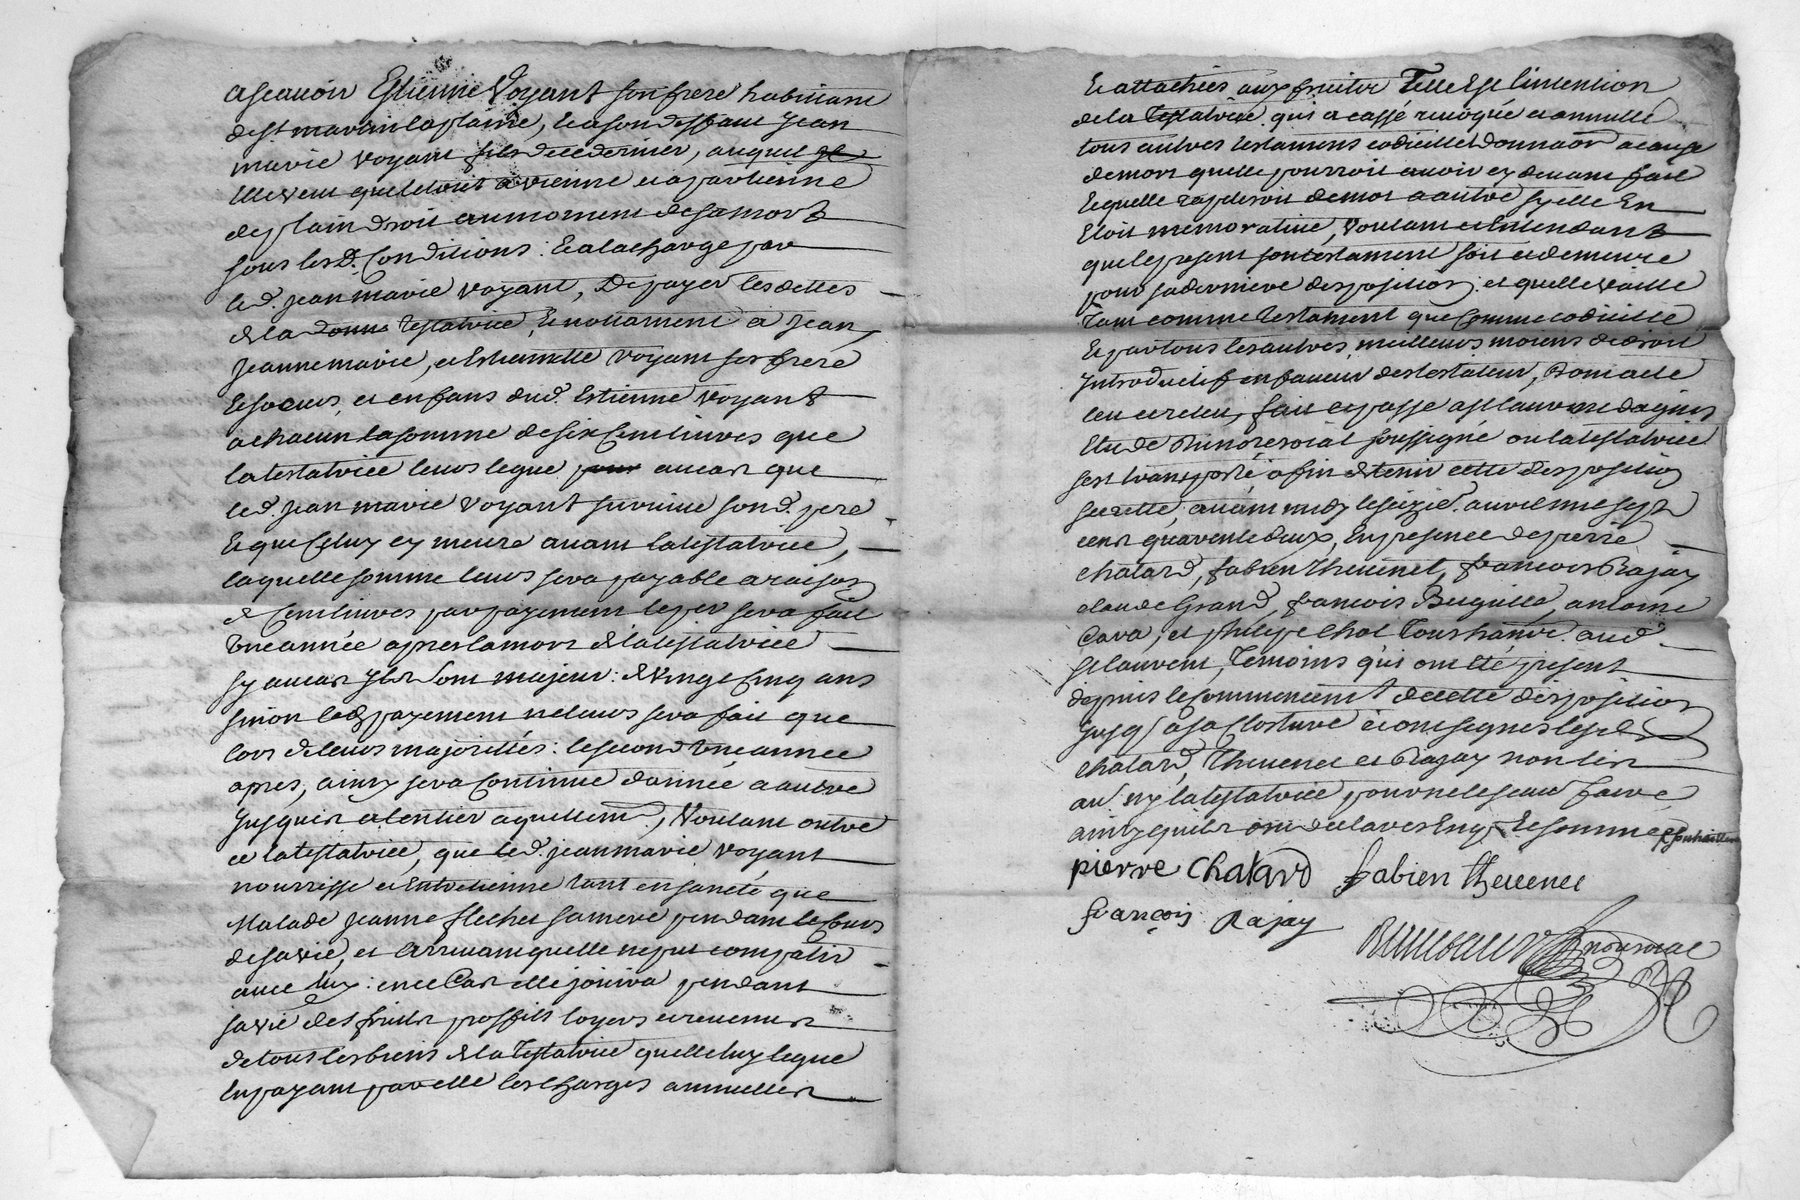 ascavoir Estienne Voyant son frere habitant
de st martin laplaine, et a son deffaut Jean
marie voyant fils de ce dernier, auquel
elle veut que le tout advienne et apartienne
de plain droit au moment de sa mort
sous les d. Conditions : et a la charge par
led. jean marie voyant, De payer les dettes
de la testatrice, et nottament a Jean,
Jeanne marie, et voyant ses frere
et soeurs, et enfans dud. Estienne voyant
a chacun la somme de six Cent livres que
la testatrice leurs legue au cas que
led. jean marie voyant survive sond. pere
et que Celuy cy meure avant la testatrice,
laquelle somme leurs sera payable a raison
de Cent livres par payement le per sera fait
une année apres la mort de la testatrice
sy au cas ils sont majeur : de vingt Cinq ans
sinon led payement ne leurs sera fait que
lors de leurs majorittés : le second une année
apres, ainsy sera Continué d'année a autre
jusques a l'entier aquittem, Voulant outre
ce la testatrice, que led. jean marie voyant
nourrisse et entretienne tant en santé que
Malade jeanne flechet sa mere pendant le Cours
de sa vie, et arrivant quelle ne put compatir
avec luy : en ce Cas elle jouira pendant
sa vie des fruits proffits loyers et revenus
de tous les biens de la testatrice quelle luy legue
en payant par elle les Charges annuelles
et attachées aux fruits Telle Est l'intention
de la Testatrice qui a cassé revoqué et annullé
tous autres testaments codicilles donnaons a cause
de mort quelle pourroit avoir cy devant fait
lequelle rapelleroit de mot a autre sy elle En
Etoit memorative, voulant et Entendant
que le present son testament soit et demeure
pour sa derniere disposition : et quelle vaille
Tant comme testament que Comme codicille
et par tous les autres meilleurs moiens de droit
introductif en faveur des testateur, Dont acte
leu et releu, fait et passé a st laurent dagnis
Etude du nore roial soussigné ou la testatrice
sest transporté, afin de tenir cette disposition
secrette, avant midy le seizie. avril mil sept
cent quarente deux, En presence de pierre
chatard, fabien thevenet, francois Rajay
claude Grand, francois Bugille, antoine
Cara, et philipe Chol Tous hants. aud.
st laurent, Temoins qui ont été present
depuis le commencemt de cette disposition
jusq'a sa Closture et ont segnés lesd.
chatard, Thevenet et Rajay non les
au. ny la testatrice pour ne le scavoir faire
ainsy quils ont declarés Enq. et sommés
pierre Chatard fabien thevenet
françois Rajay
nore roial